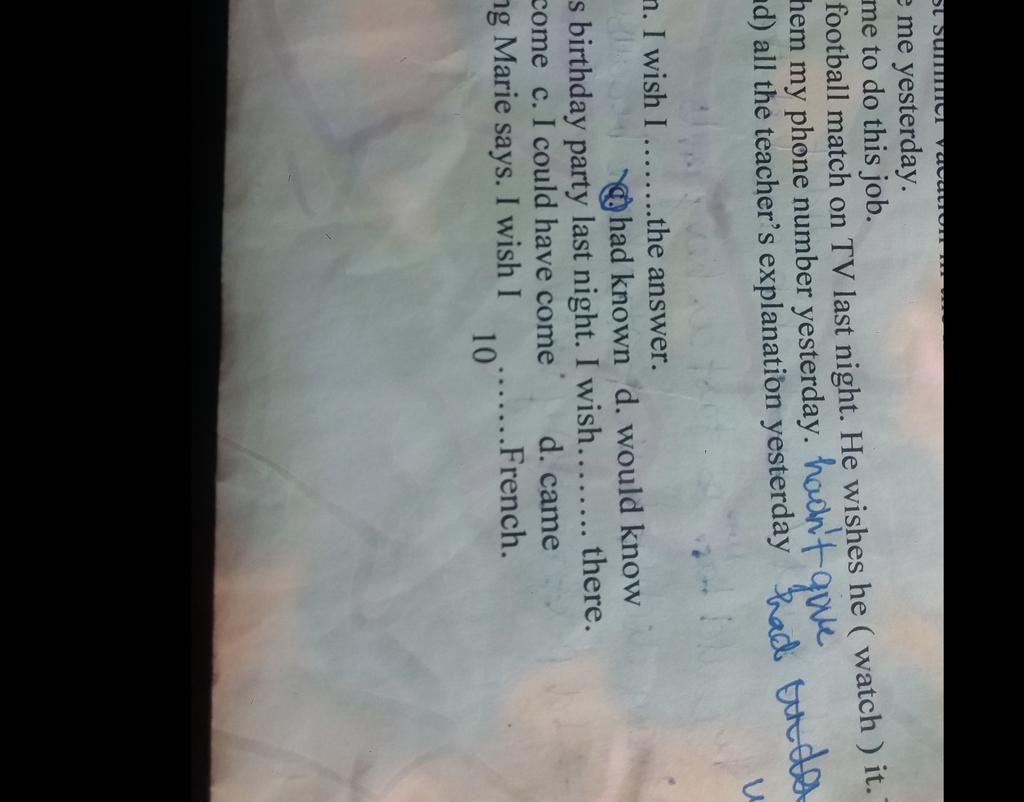 me yesterday.
me to do this job.
football match on TV last night. He wishes he ( watch ) it.
my phone number yesterday. hadn't gave
all the teacher's explanation yesterday had
I wish I ........the answer.
c. had known d. would know
birthday party last night. I wish........ there.
come c. I could have come d. came
Marie says. I wish I
10.......French.